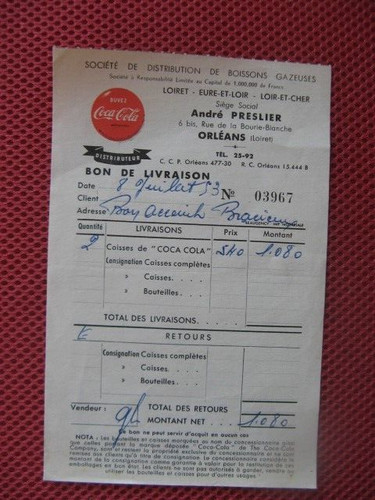 SOCIÉTÉ DE DISTRIBUTION DE BOISSONS GAZEUSES
Société à Responsabilité Limitée au Capital de 1.000.000 de Francs
LOIRET - EURE-ET-LOIR - LOIR-ET-CHER
Siège Social
André PRESLIER
6 bis, Rue de la Bourie-Blanche
ORLÉANS (Loiret)
BUVEZ
Coca-Cola
DISTRIBUTEUR
TÉL. 25-92
C. C. P. Orléans 477-30 R. C. Orléans 15.444 B
BON DE LIVRAISON
Date 8 Juillet 53 No 03967
Client
Adresse
Quantité LIVRAISONS Prix Montant
2 Caisses de "COCA COLA" 540 1.080
Consignation Caisses complètes
» Caisses. . . .
» Bouteilles. . . .
TOTAL DES LIVRAISONS. . . .
RETOURS
Consignation Caisses complètes
» Caisses. . . .
» Bouteilles. . . .
Vendeur : TOTAL DES RETOURS
MONTANT NET . . . 1.080
Ce bon ne peut servir d'acquit en aucun cas
NOTA : Les bouteilles et caisses marquées au nom du concessionnaire ainsi
que celles portant la marque déposée "Coca-Cola" de The Coca-Cola
Company, sont et restent la propriété exclusive du concessionnaire et ne sont
remises aux clients qu'à titre de consignation. Le concessionnaire considère le
montant de la consignation comme garantie à valoir pour la restitution de ces
emballages en bon état. Les clients ne sont pas autorisés à garder, vendre ou
utiliser bouteilles et caisses pour d'autres usages.